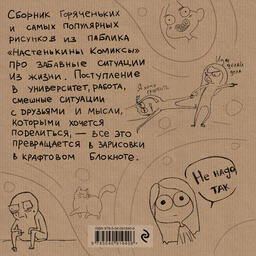 Сборник горяченьких
и самых популярных
рисунков из паблика
«Настенькины комиксы»
про забавные ситуации
из жизни. Поступление
в университет, работа,
смешные ситуации
с друзьями и мысли,
которыми хочется
поделиться, — все это
превращается в зарисовки
в крафтовом блокноте.
Не надо
так